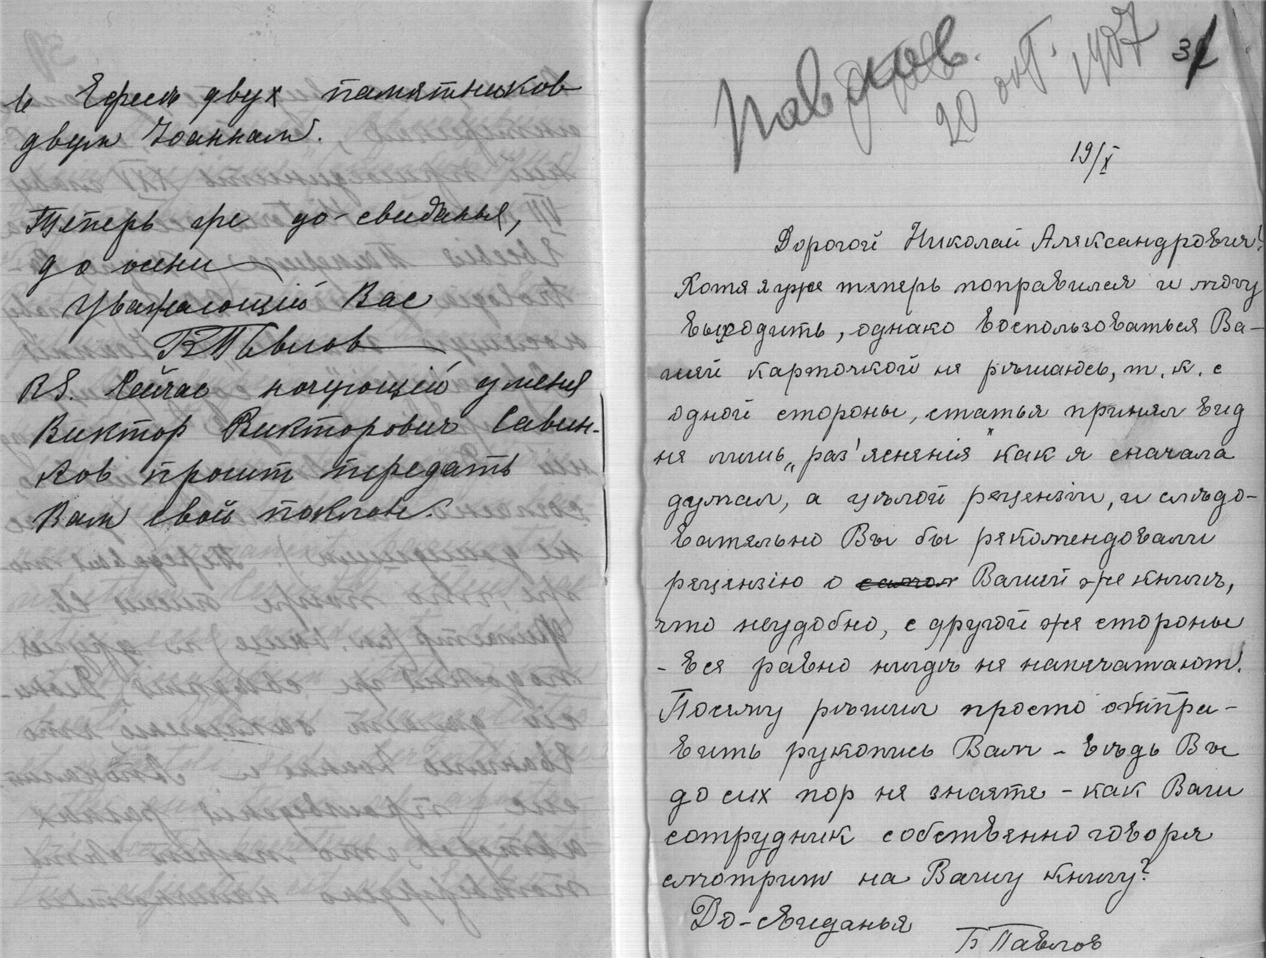 въ Ефесѣ двух памятников
двум Іоаннам.
Теперь же до-свиданья,
до осени
Уважающій Вас
Б Павлов
PS. Сейчас ночующій у меня
Виктор Викторович Савин-
ков просит передать
Вам свой поклон.
Павлов.
20 окт. 1907
19/X
Дорогой Николай Александрович!
Хотя я уже теперь поправился и могу
выходить, однако воспользоваться Ва-
шей карточкой не рѣшаюсь, т. к. с
одной стороны, статья принял вид
не лишь „раз'яснения" как я сначала
думал, а цѣлой рецензіи, и слѣдо-
вательно Вы бы рекомендовали
рецензію о Вашей же книгѣ,
что неудобно, с другой же стороны
- все равно нигдѣ не напечатают!
Посему рѣшил просто отпра-
вить рукопись Вам - вѣдь Вы
до сих пор не знаете - как Ваш
сотрудник собственно говоря
смотрит на Вашу книгу?
До-свиданья
Б Павлов